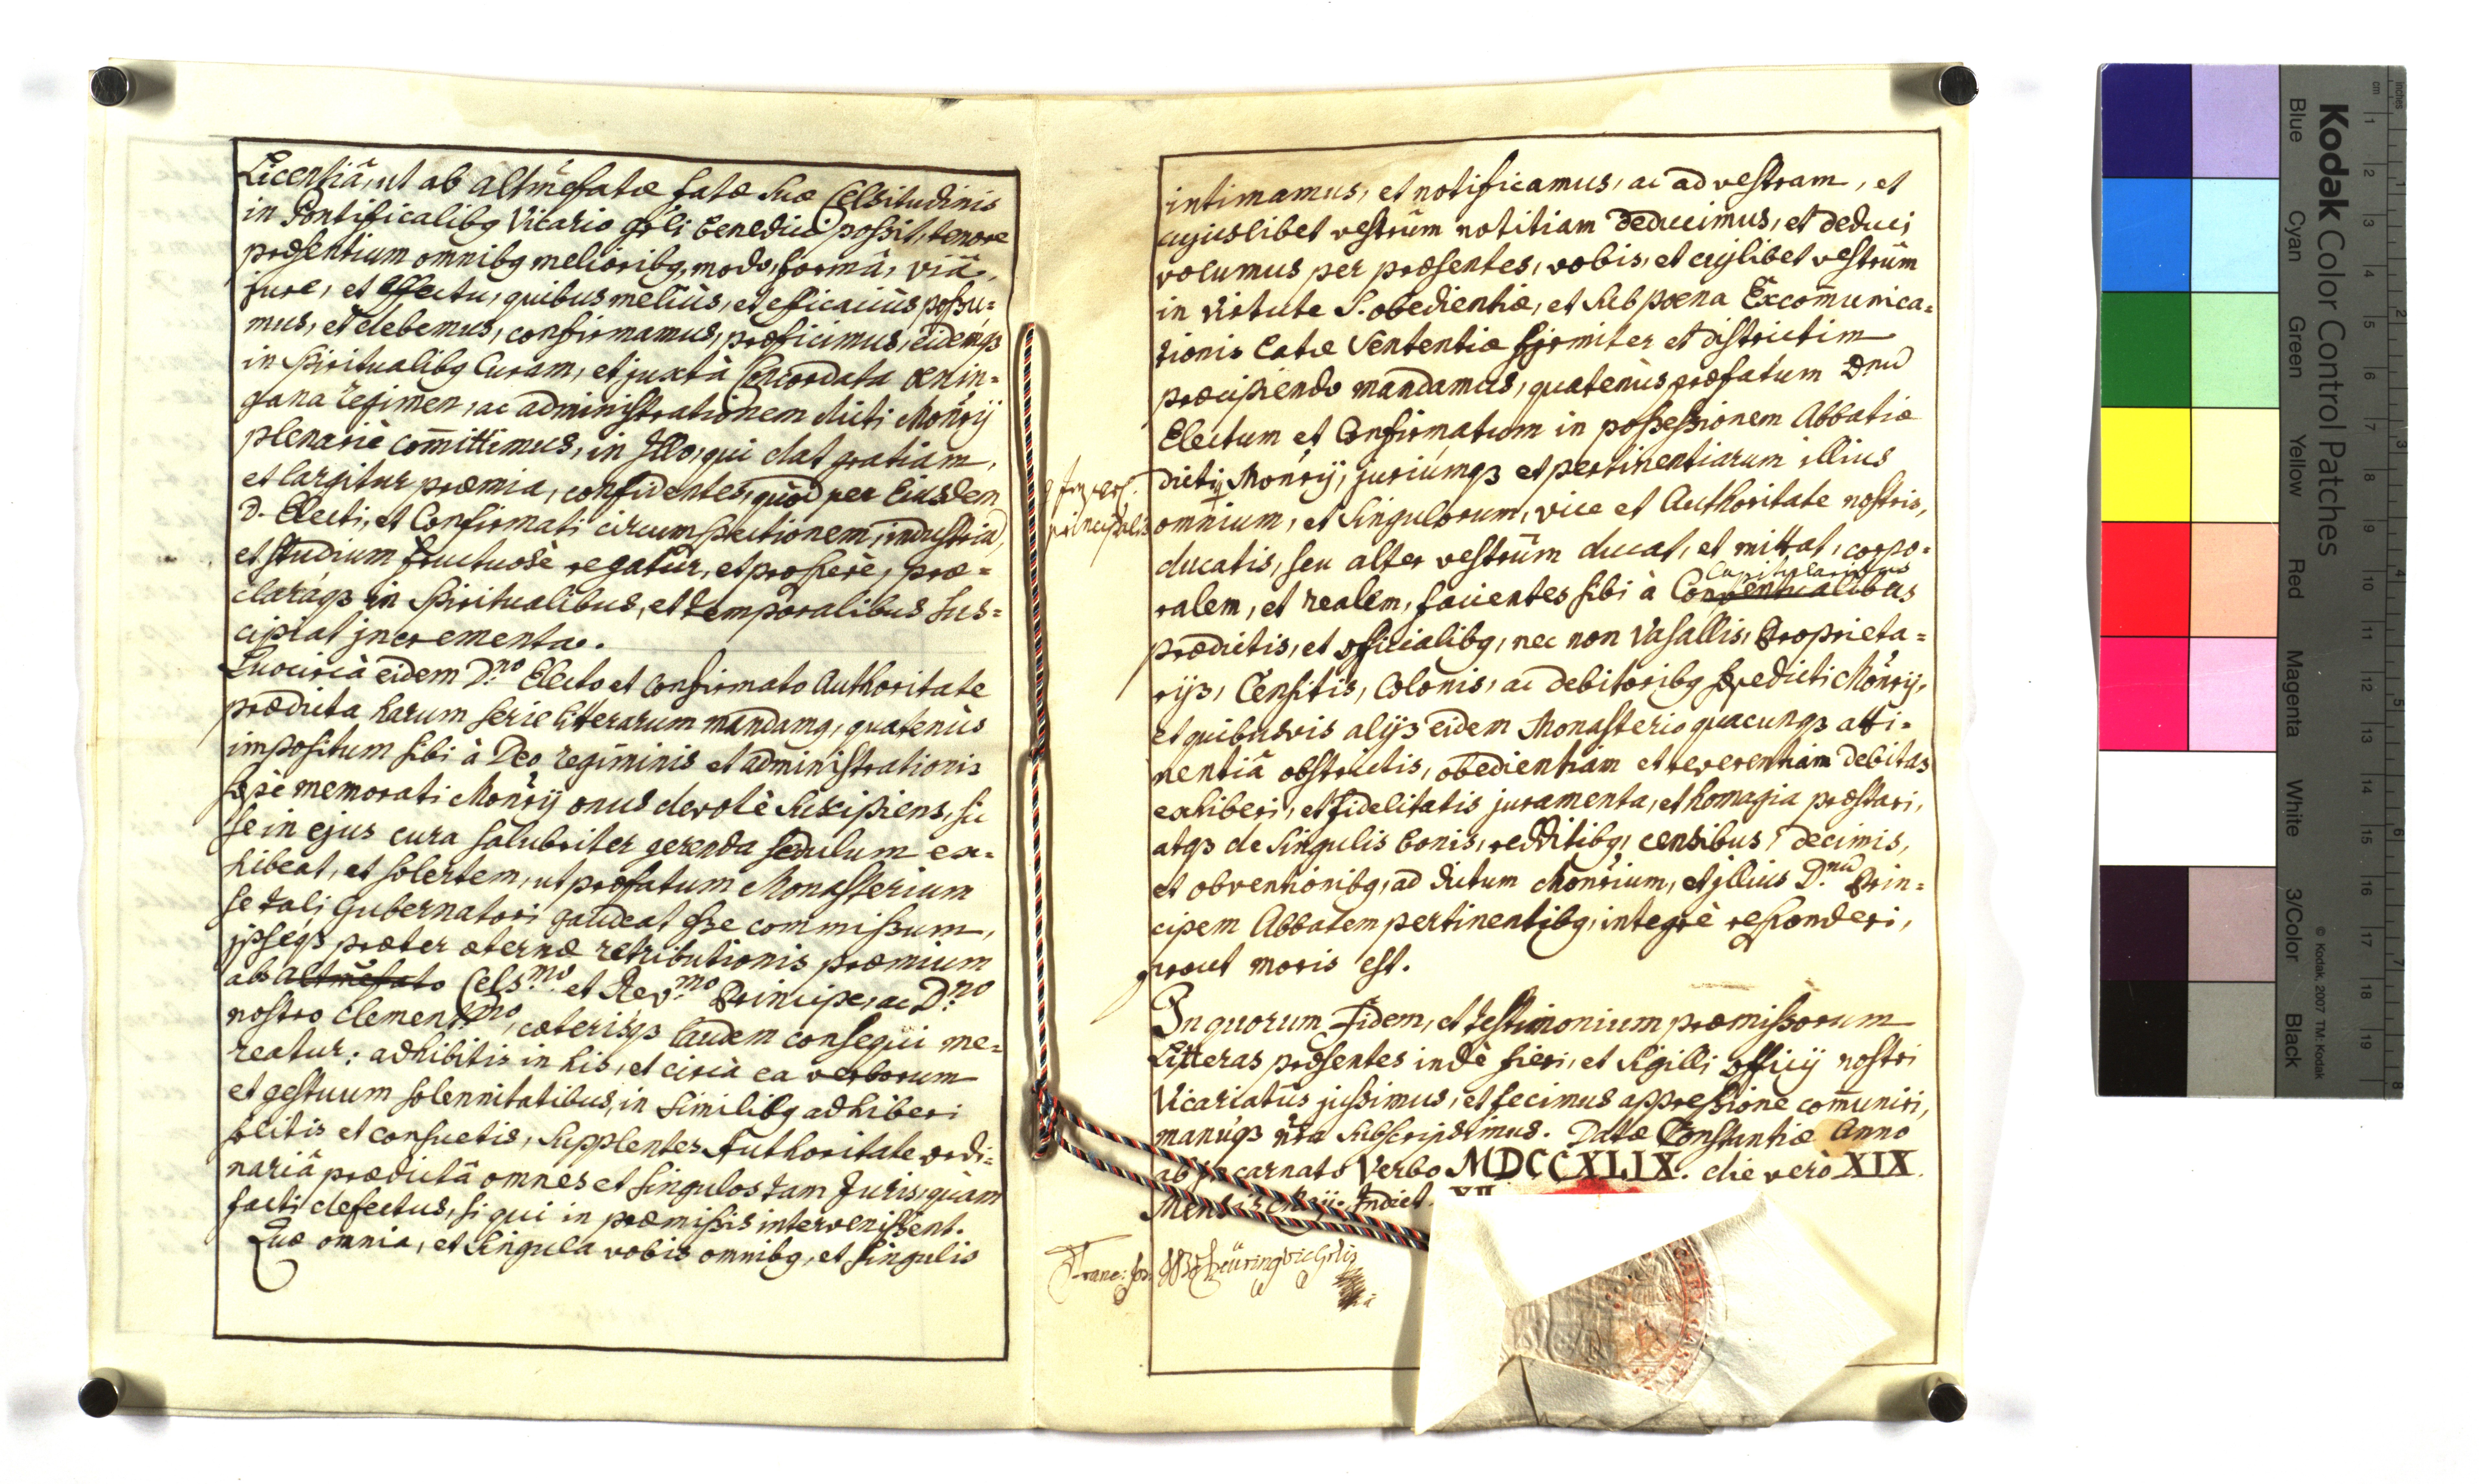 Licentiâ, ut ab altmẽfatæ fatæ suæ Celsitudinis
in Pontificalibq Vicario gñli benedici possit, tenore
præsentium omnibq melioribq, modo, formâ, viâ,
jure, et effectu, quibus meliùs, et efficaciùs possu=
mus, et debemus, confirmamus, præficimus, eidemqз
in Spiritualibq Curam, et juxtà Concordata Oenin=
gana regimen, ac administrationem dicti Moñrij
plenariè com̃ittimus, in Illo, qui dat gratiam,
et largitur præmia, confidentes, quòd per Eiusdem
D. Electi, et Confirmati circumspectionem, industriã,
et studium fructuosè regatur, et prosperè, præ=
claráqз in Spiritualibus, et temporalibus sus=
cipiat jncrementa.
Quocircà eidem D.no Electo et Confirmato Authoritate
prædicta harum serie litterarum mandamq, quatenùs
impositum sibi à Deo regiminis et administrationis
sæpè memorati Moñrij onus devotè suscipiens, sic
se in ejus cura salubriter gerenda sedulum ex=
hibeat, et solertem, ut præfatum Monasterium
se tali Gubernatori gaudeat esse commissum,
jpseqз præter æternæ retributionis præmium
ab altmẽfato Cels.mo et Rev.mo Principe, ac D.no
nostro Clement.mo, cæterisqз laudem consequi me=
reatur: adhibitis in his, et circà ea verborum
et gestuum solennitatibus, in similibq adhiberi
solitis et consuetis, supplentes Authoritate ordi=
nariâ prædictâ omnes et singulos tam Juris, quàm
facti defectus, si qui in præmissis intervenissent.
Quæ omnia, et singula vobis omnibq, et singulis
intimamus, et notificamus, ac ad vestram, et
cujuslibet vestrûm notitiam deducimus, et deduci
volumus per præsentes, vobis, et cujlibet vestrûm
in virtute S. obedientiæ, et sub pœna Excom̃unica=
tionis latæ Sententiæ firmiter et districtim
præcipiendo mandamus, quatenùs præfatum Dnũ
Electum et Confirmatum in possessionem Abbatiæ
dicti Moñrij, juriúmqз et pertinentiarum illius
omnium, et singulorum, vice et Authoritate nostris,
principalis
ducatis, seu alter vestrûm ducat, et mittat, corpo=
Capitularibus
ralem, et realem, facientes sibi à Conventualibus
prædictis, et officialibq, nec non Vasallis, Proprieta=
rijs, Censitis, Colonis, ac debitoribq sæpedicti Moñrij,
et quibusvis alijs eidem Monasterio quacunqз atti=
nentiâ obstrictis, obedientiam et reverentiam debitas
exhiberi, et fidelitatis juramenta, et homagia præstari,
atqз de singulis bonis, redditibq, censibus, decimis,
et obventionibq, ad dictum Moñrium, et jllius D.nũ Prin=
cipem Abbatem pertinentibq, integrè responderi,
prout moris est.
In quorum Fidem, et testimonium præmissorum
Litteras præsentes indè fieri, et Sigilli officij nostri
Vicariatûs jussimus, et fecimus appressione com̃uniri,
manúqз nr̃a subscripsimus. Datæ Constantiæ Anno
ab Jncarnato Verbo MDCCXLIX. die verò XIX.
Mensis Maij. Indict. XII
Franc: Jos:
Kodak Color Control Patches
© Kodak, 2007 TM: Kodak
Blue Cyan Green Yellow Red Magenta White 3/Color Black
inches 1 2 3 4 5 6 7 8
cm 1 2 3 4 5 6 7 8 9 10 11 12 13 14 15 16 17 18 19